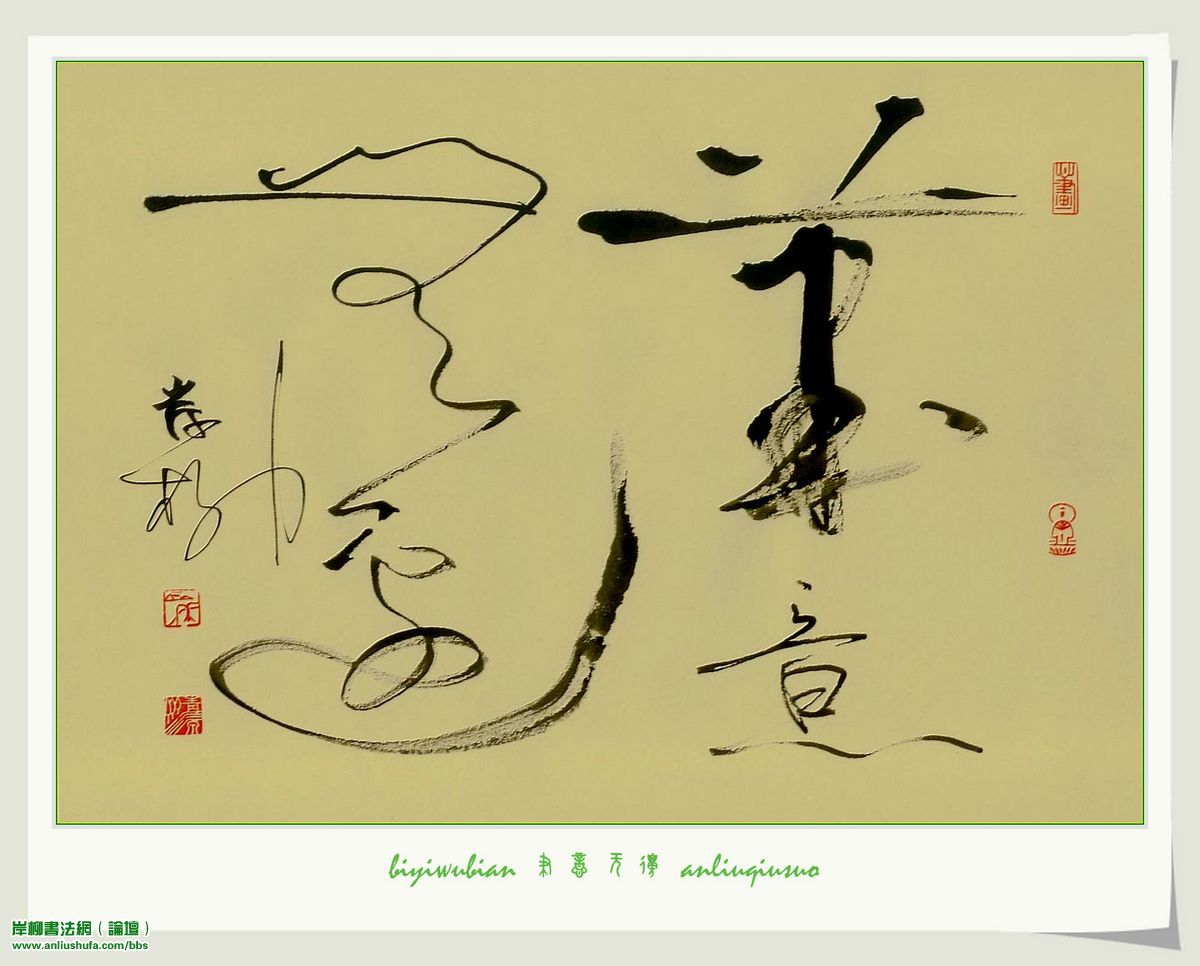 筆意
无邊
岸柳
biyiwubian 聿意无邊 anliuqiusuo
岸柳書法網（論壇）
www.anliushufa.com/bbs